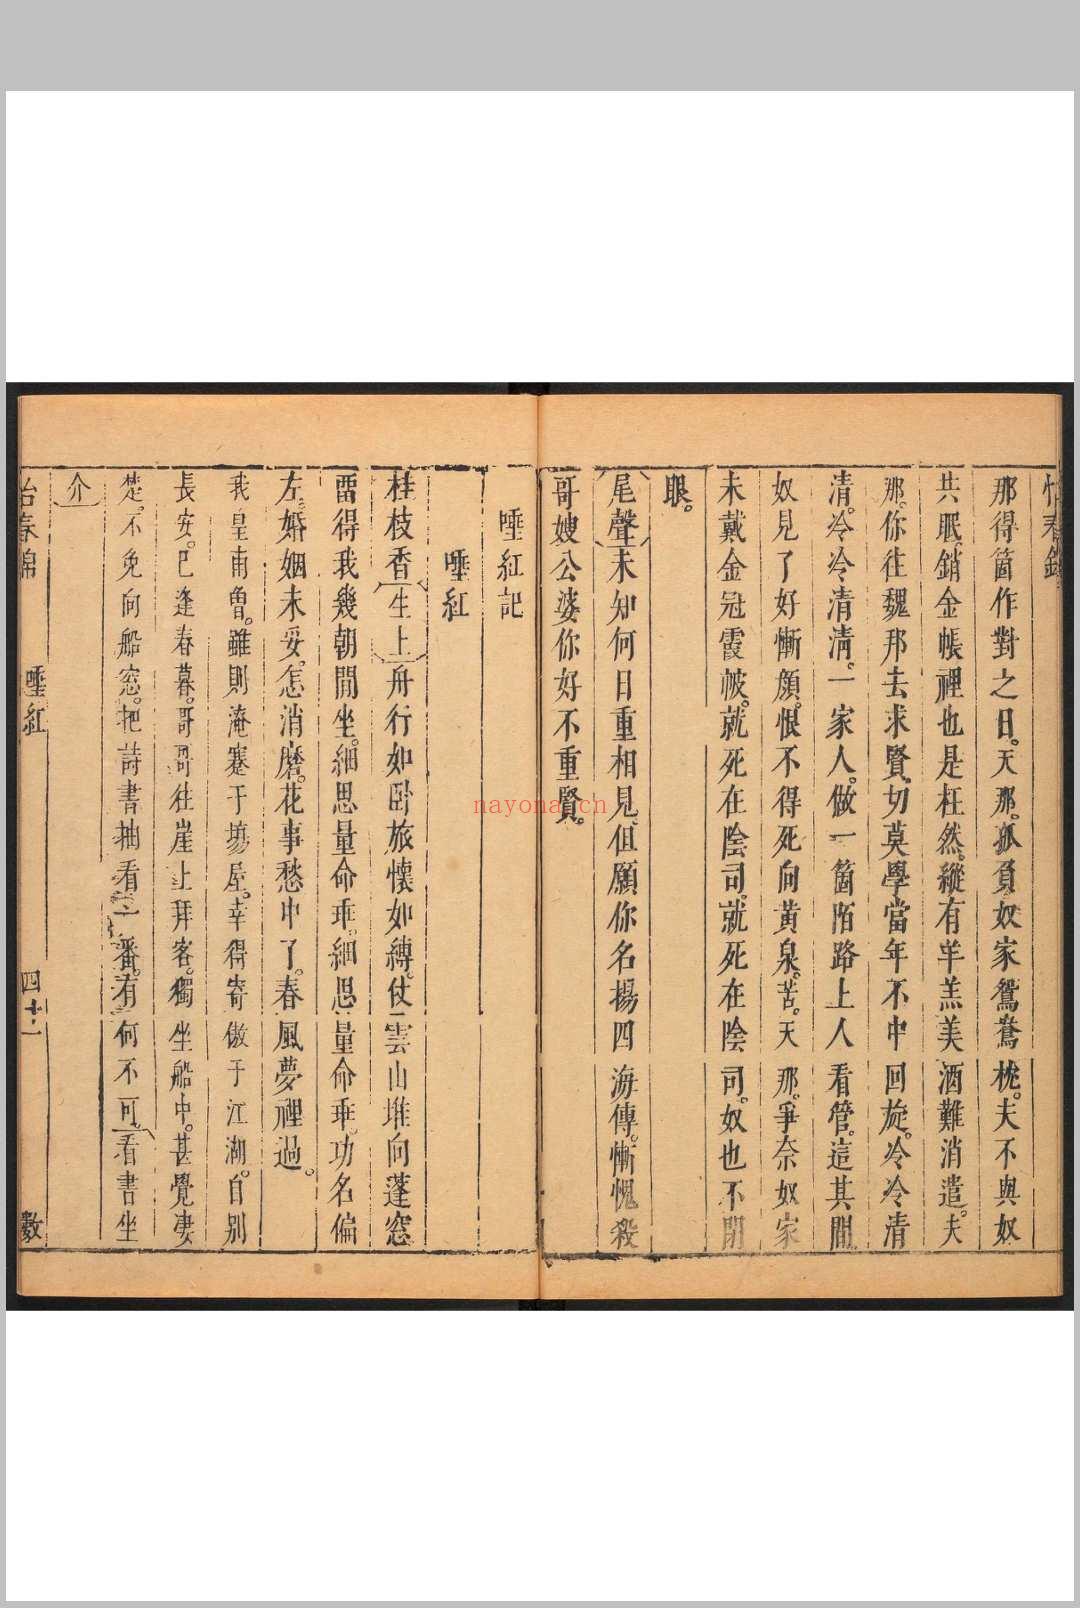 怡春錦
那得箇作對之日。天那。孤負奴家鴛鴦枕。夫不與奴
共眠。銷金帳裡也是枉然。縱有羊羔美酒難消遣。夫
那。你往魏邦去求賢。切莫學當年不中回旋。冷冷清
清。冷冷清清。一家人。做一箇陌路上人看管。這其間
奴見了好慚顏。恨不得死向黃泉。苦。天那。爭奈奴家
未戴金冠霞帔。就死在陰司。就死在陰司。奴也不閉
眼。
尾聲 未知何日重相見。但願你名揚四海傳。慚愧殺
哥嫂公婆你好不重賢。
唾紅記
唾紅
桂枝香 生上 舟行如臥旅懷如縛。仗雲山堆向蓬窓
畱得我幾朝閒坐。細思量命乖。細思量命乖。功名偏
左。婚姻未妥。怎消磨。花事愁中了。春風夢裡過。
我皇甫曾。雖則淹蹇于塲屋。幸得寄傲于江湖。自别
長安。已逢春暮。哥哥往崖上拜客。獨坐船中。甚覺凄
楚。不免向船窓。把詩書抽看一番。有何不可。看書坐
介
怡春錦 唾紅 四十二 數
nayona.cn